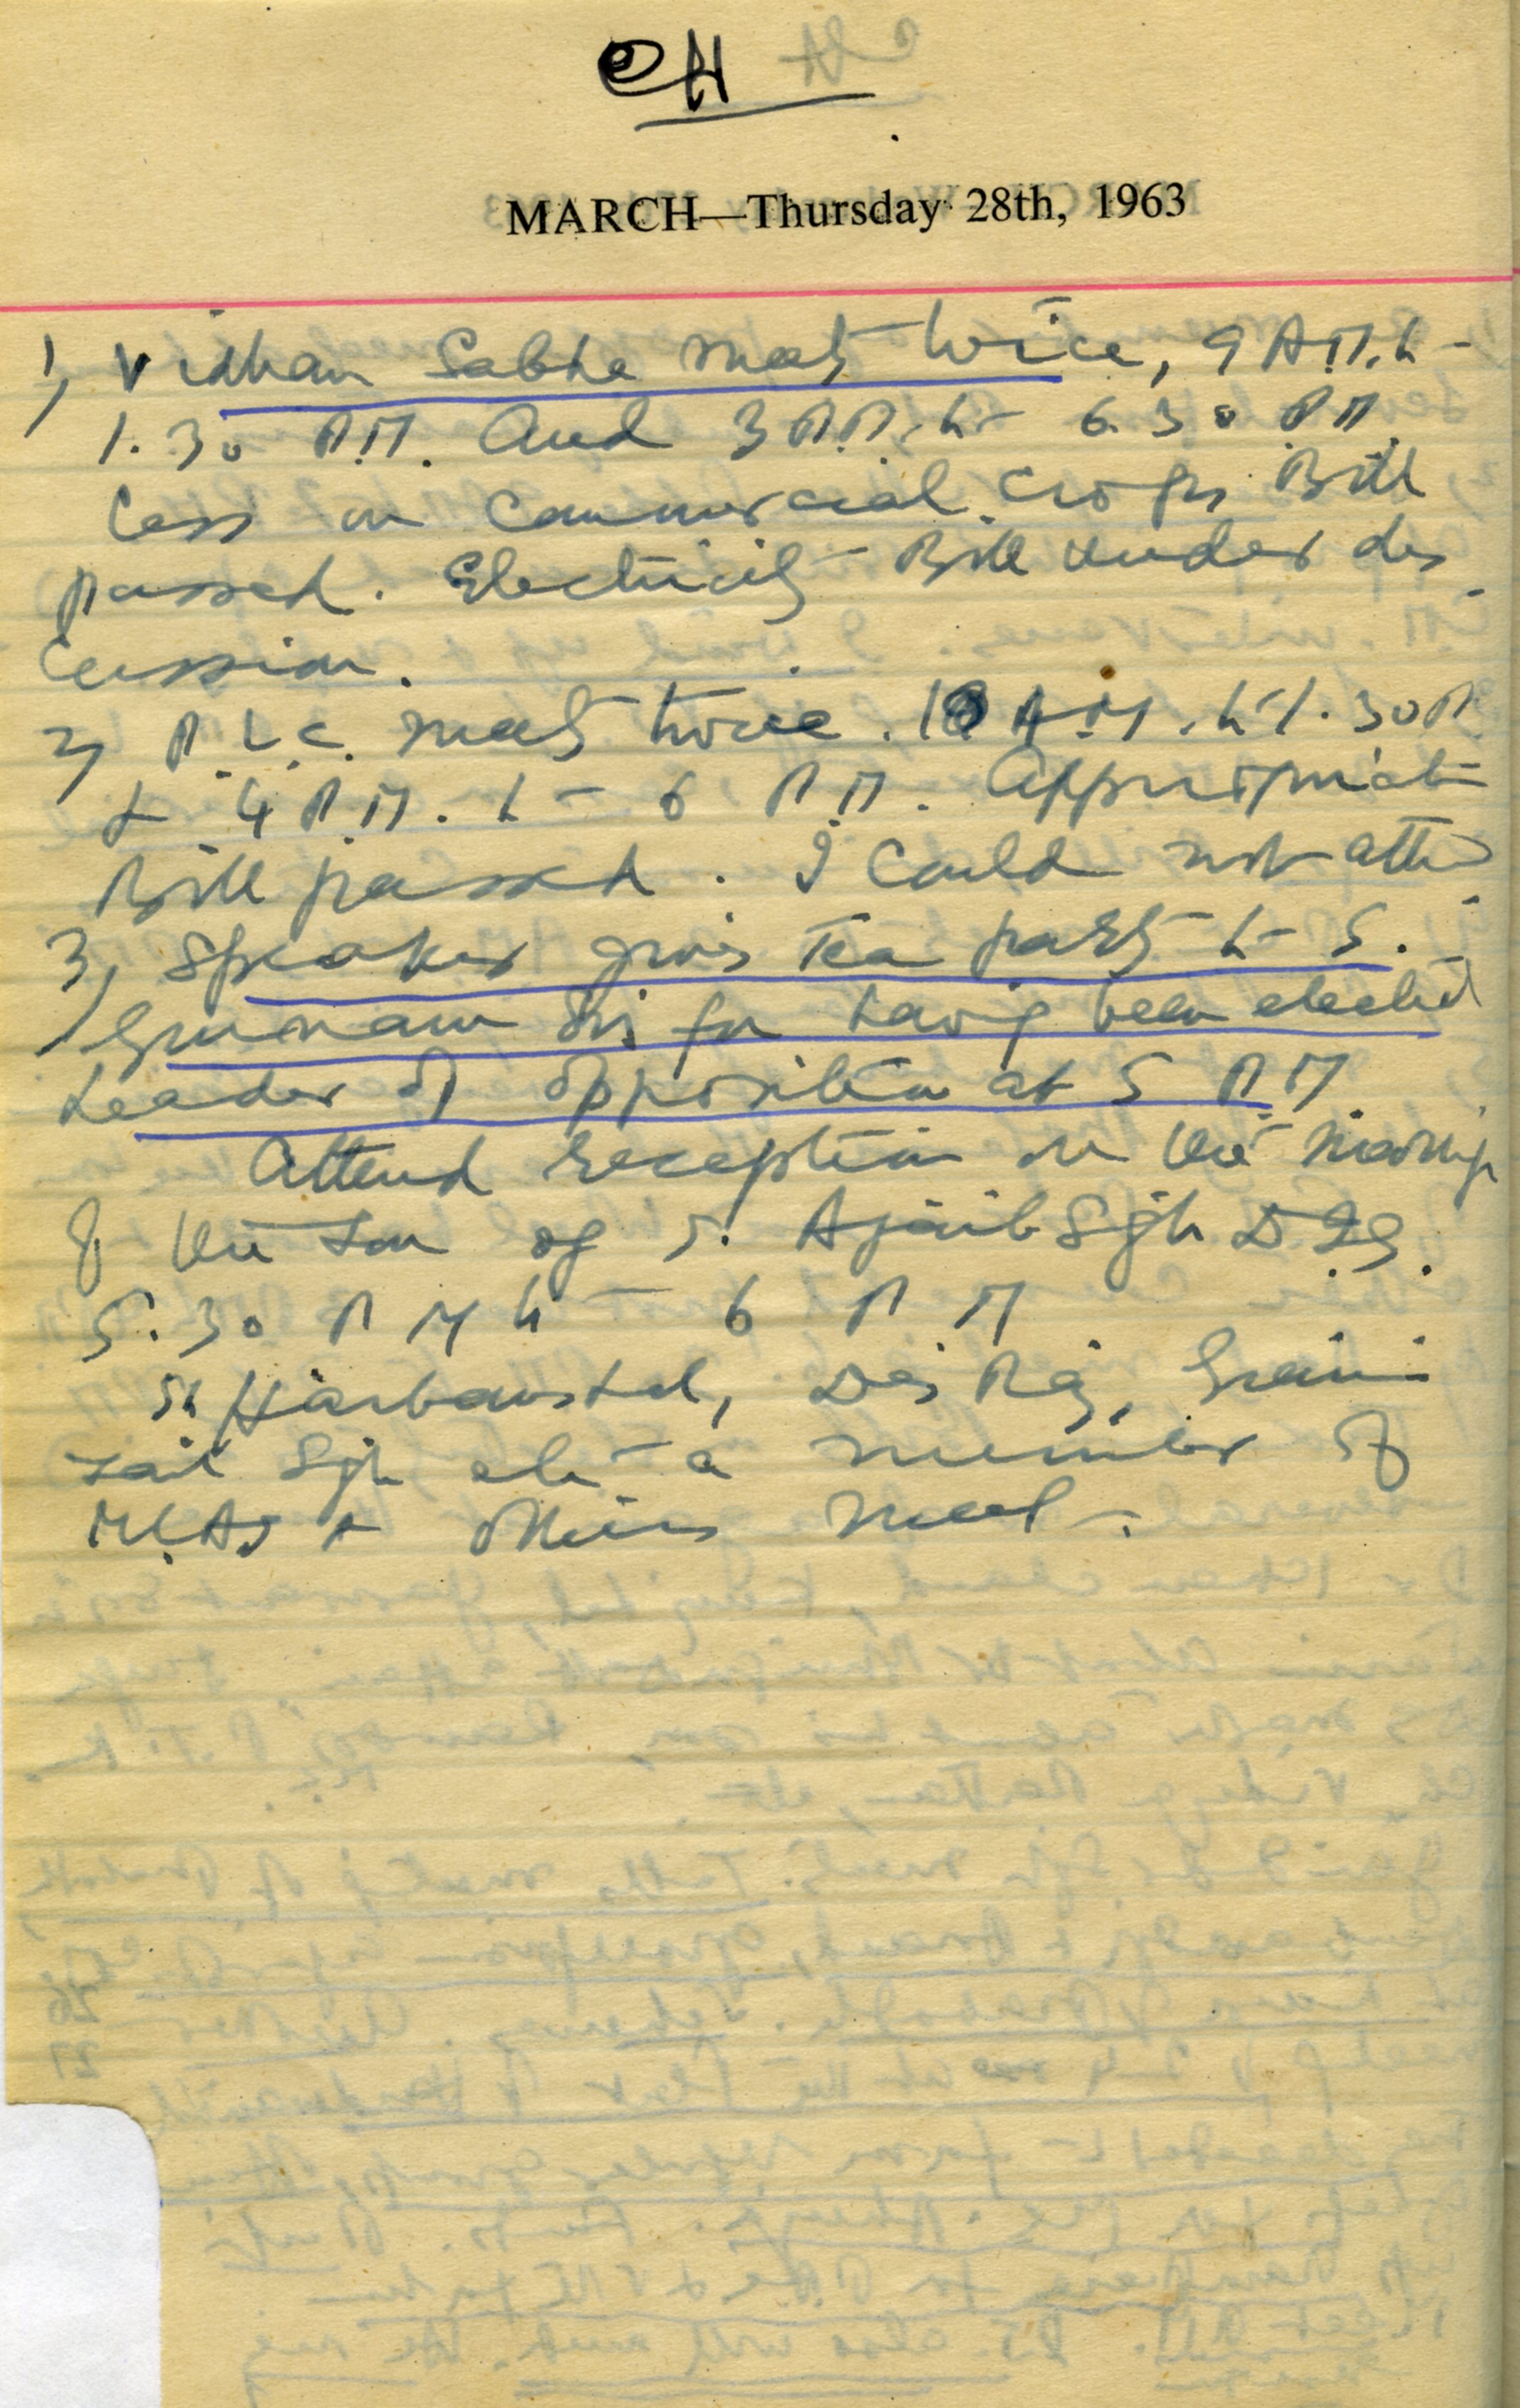 CH
MARCH—Thursday 28th, 1963
1, Vidhan Sabha meets twice, 9 A.M. to
1.30 P.M. and 3 P.M. to 6.30 P.M.
Cess on Commercial Crops Bill
passed. Electricity Bill under dis
cussion.
2, P.L.C. meets twice. 10 A.M. to 1.30 P
& 4 P.M. to 6 P.M. Appropriation
Bill passed. I could not attend
3, Speaker gives Tea party to S.
Gurnam Sin for having been elected
Leader of opposition at 5 P.M
Attend reception on the marriage
of the son of S. Ajaib Sgh DIG.
5.30 P M to 6 P M
Sh Harbans Lal, Des Raj, Giani
Zail Sgh etc a number of
MLAs & others meet.